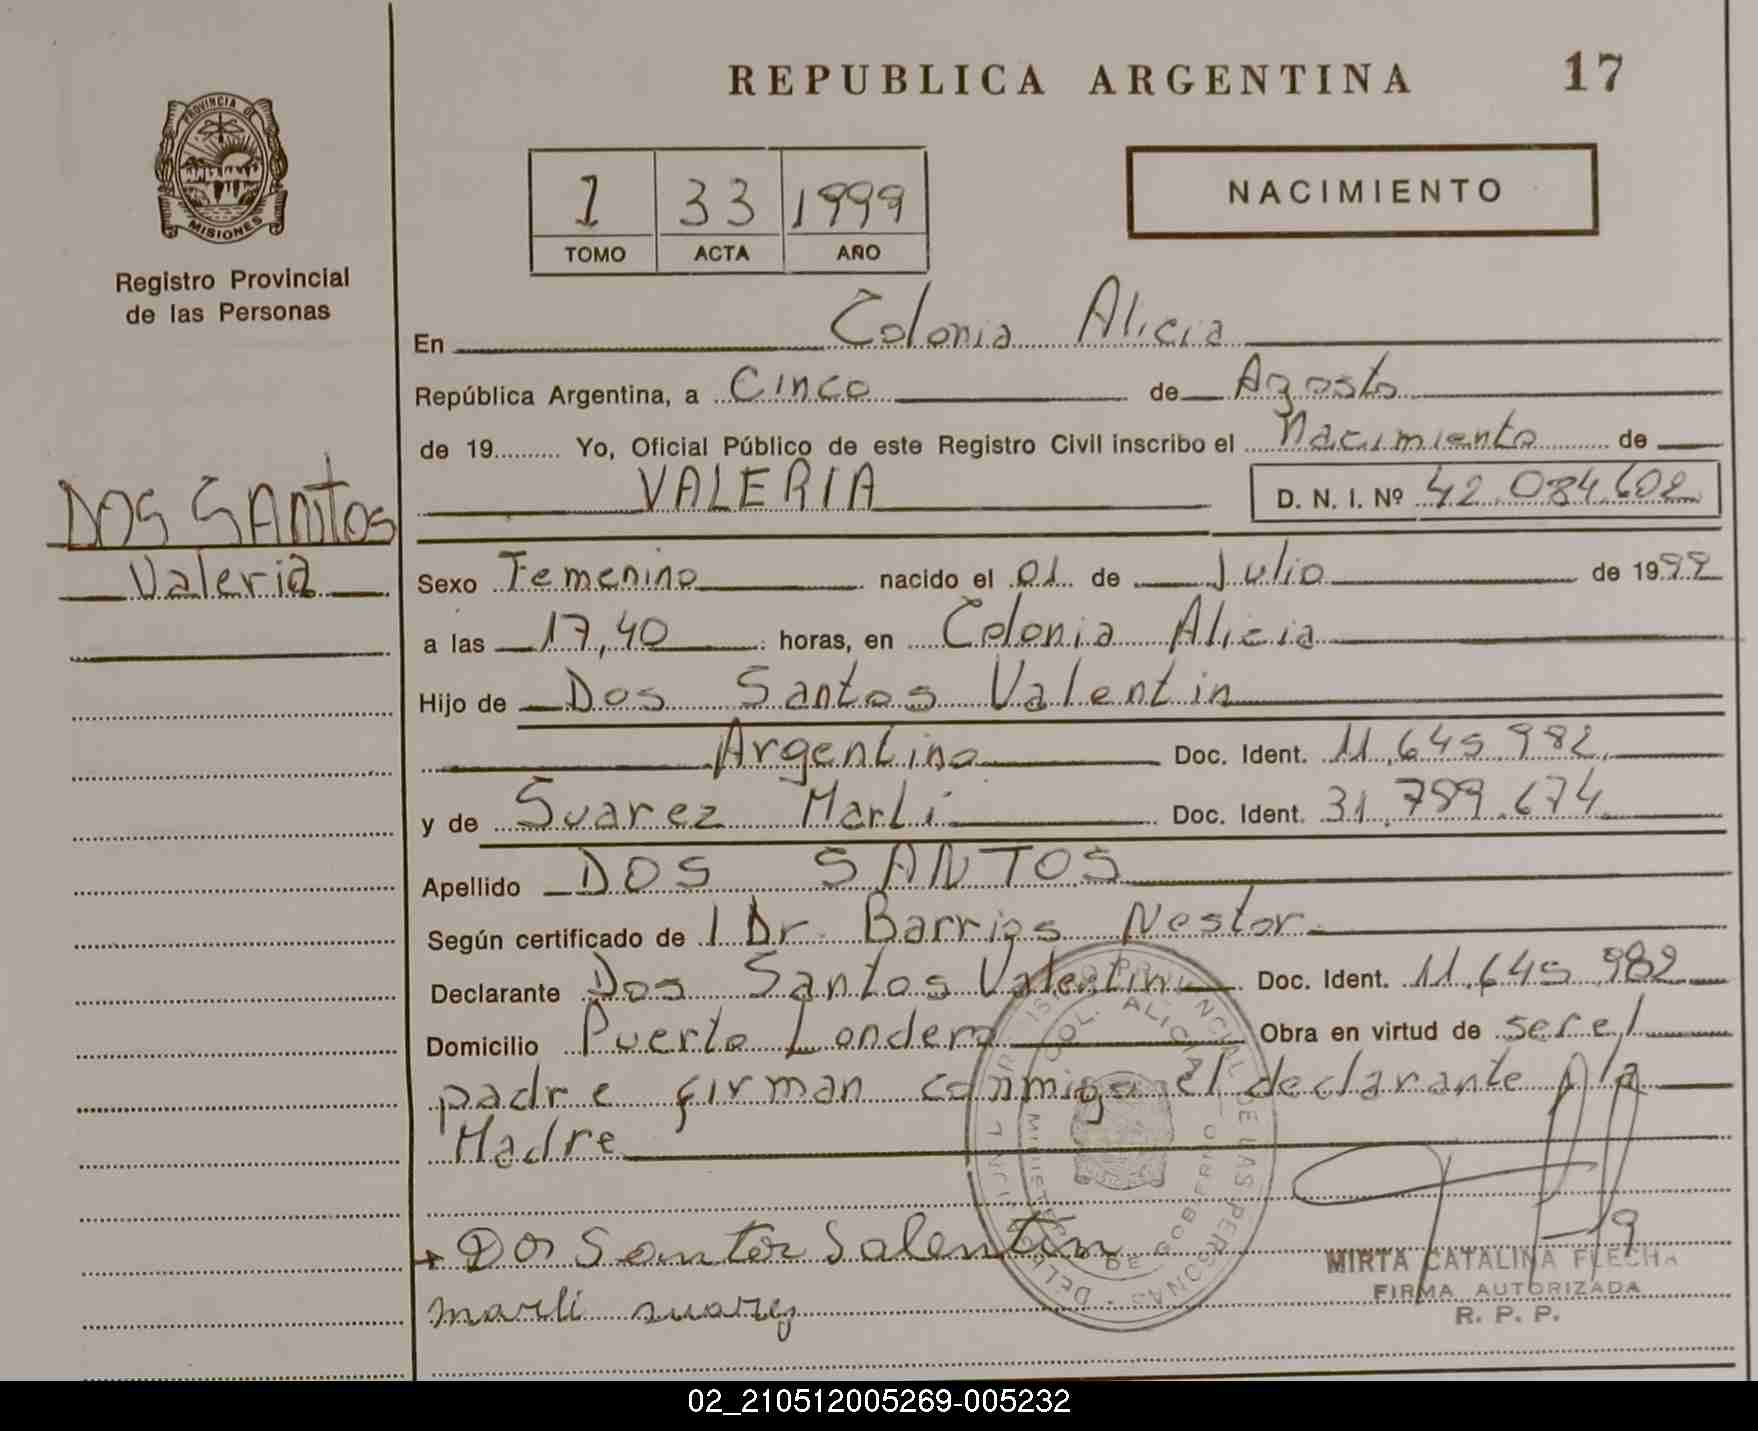 REPUBLICA ARGENTINA 17
PROVINCIA DE
MISIONES
Registro Provincial
de las Personas
1 33 1999
TOMO ACTA AÑO
NACIMIENTO
En Colonia Alicia
República Argentina, a Cinco de Agosto
de 19.......... Yo, Oficial Público de este Registro Civil inscribo el Nacimiento de
VALERIA D. N. I. Nº 42.084.602
DOS SANTOS
Valeria
Sexo Femenino nacido el 01 de Julio de 1999
a las 17,40 horas, en Colonia Alicia
Hijo de Dos Santos Valentin
Argentino Doc. Ident. 11.645.982
y de Suarez Marli Doc. Ident. 31.789.674
Apellido DOS SANTOS
Según certificado de Dr. Barrios Nestor
Declarante Dos Santos Valentin Doc. Ident. 11.645.982
Domicilio Puerto Londero Obra en virtud de ser el
padre firman conmigo el declarante y la
Madre
COL. ALICIA
PROVINCIAL DE LAS PERSONAS
DE GOBIERNO
Dos Santos Valentin
marli suarez
MIRTA CATALINA FLECHA
FIRMA AUTORIZADA
R. P. P.
02_210512005269-005232